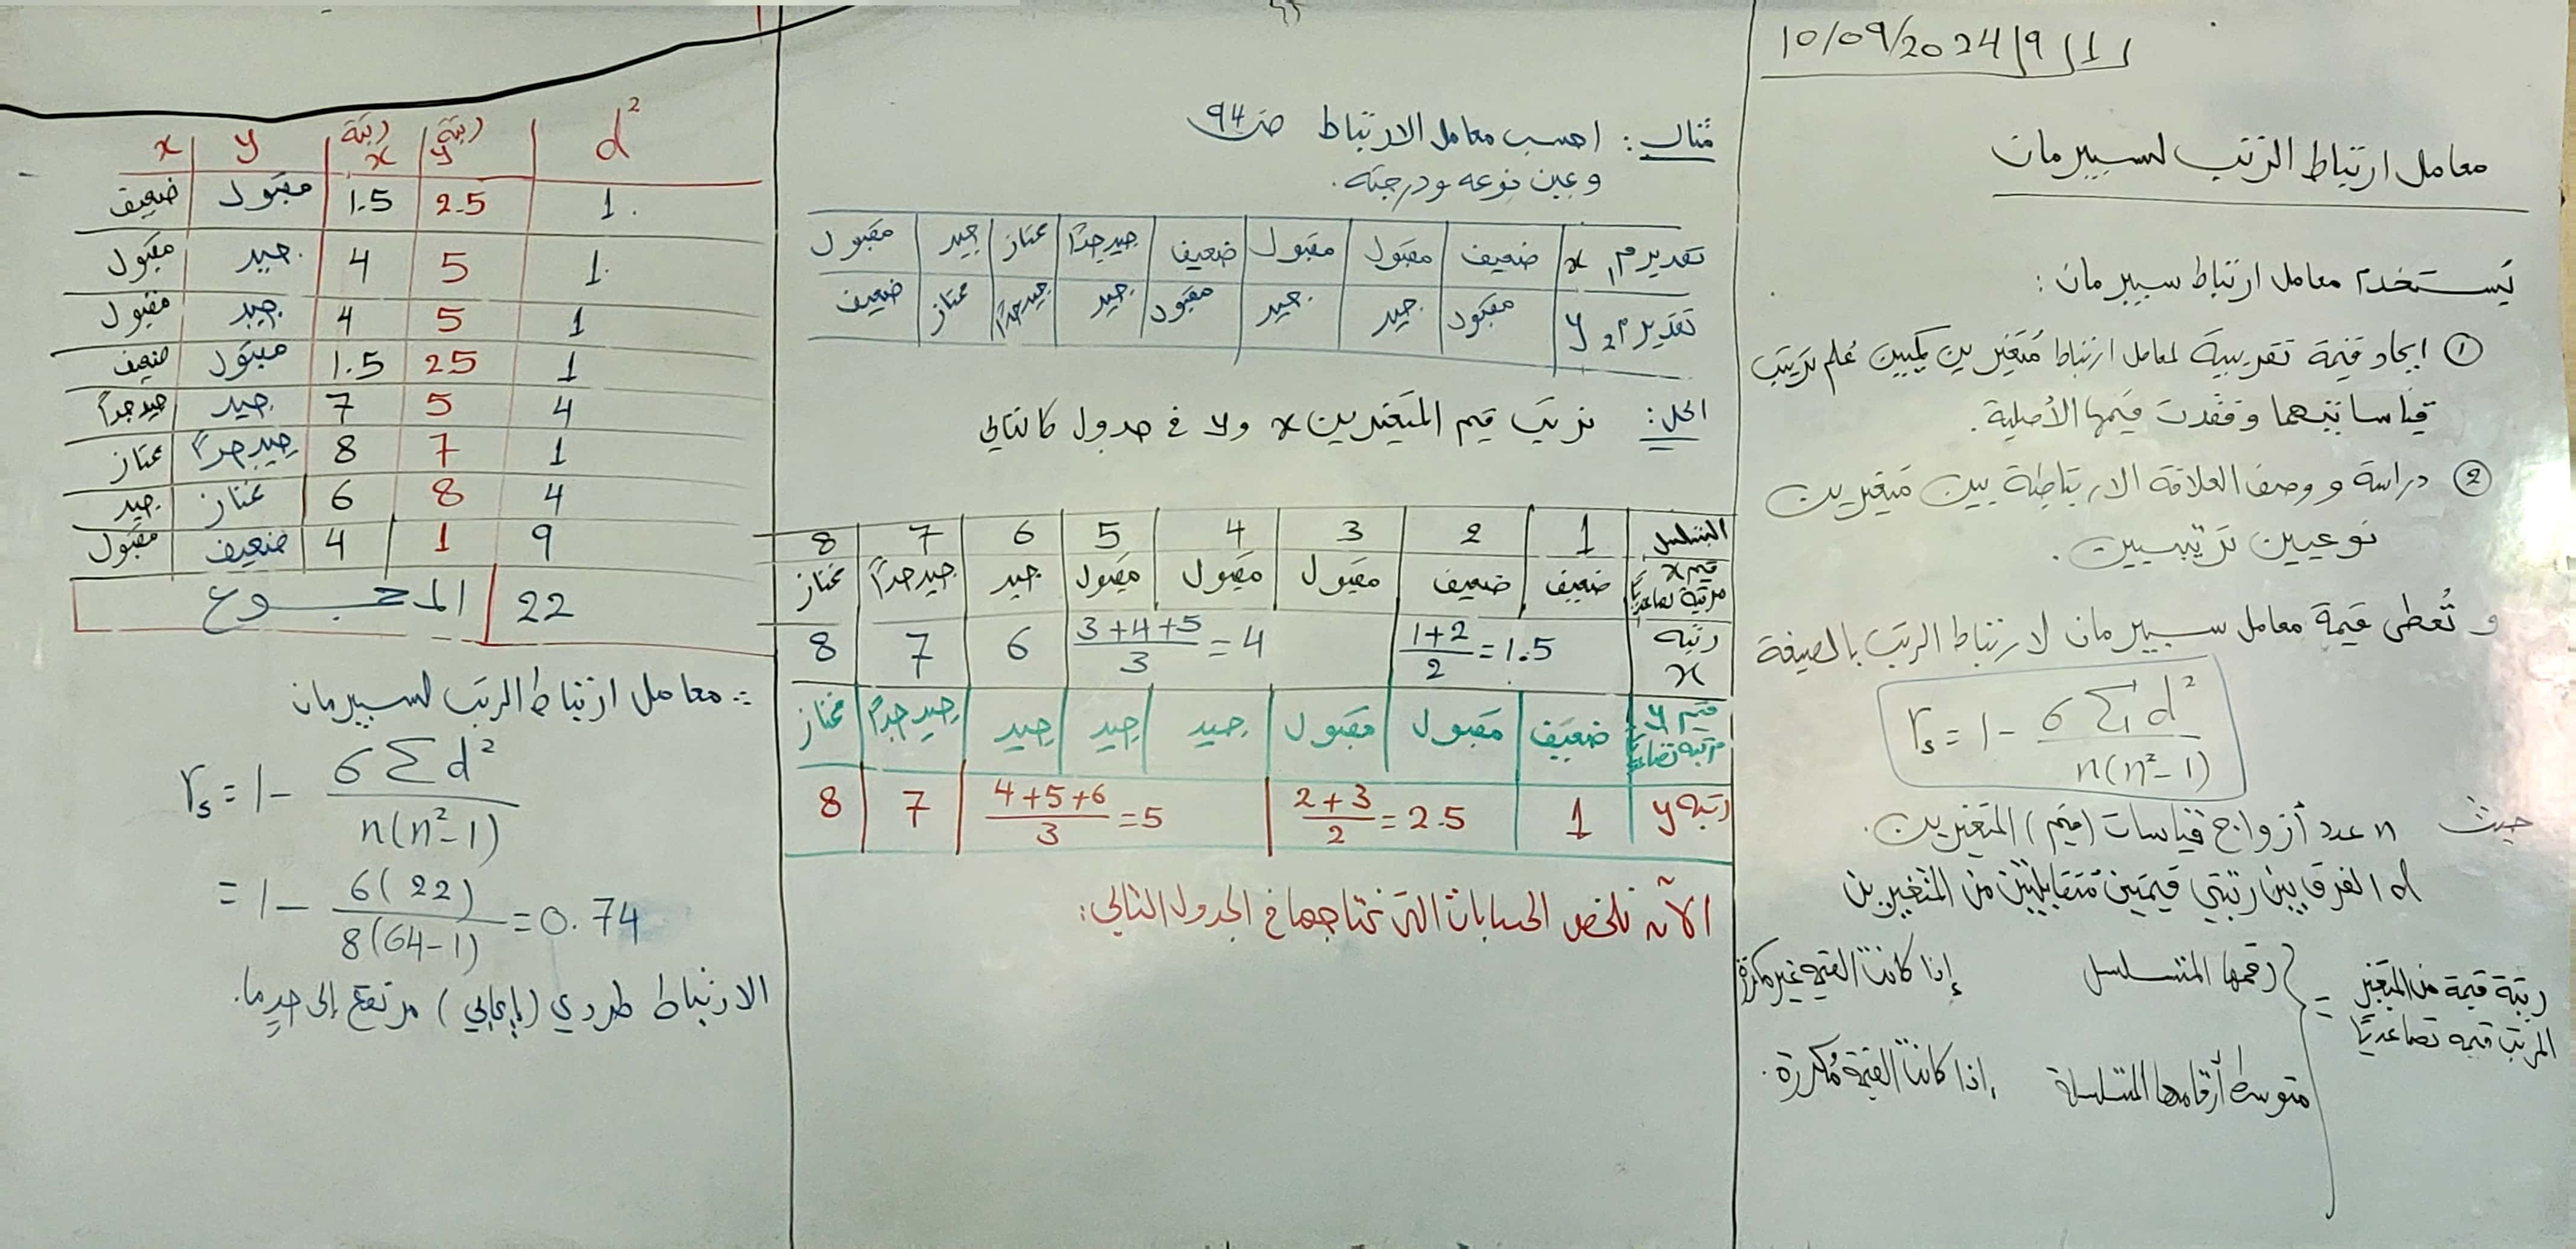 10/09/2024
معامل ارتباط الرتب لسبيرمان
يُستخدم معامل ارتباط سبيرمان :
① ايجاد قيمة تقريبية لمعامل ارتباط مُتغيرين كميين عُلم ترتيب
قياساتهما وفقدت قيمها الأصلية .
② دراسة و وصف العلاقة الارتباطية بين متغيرين
نوعيين ترتيبيين .
و تُعطى قيمة معامل سبيرمان لارتباط الرتب بالصيغة
rs = 1 - 6 Σ d² / n(n² - 1)
حيث n عدد أزواج قياسات (قيم) المتغيرين .
d الفرق بين رتبتي قيمتين مُتقابلتين من المتغيرين
رتبة قيمة من المتغير = رقمها المتسلسل إذا كانت القيمة غير مكررة
المرتب قيمه تصاعديًا
متوسط أرقامها المتسلسلة , اذا كانت القيمة مُكررة .
مثال : احسب معامل الارتباط ص ٩٤
وعين نوعه ودرجته .
تقدير م1 x | ضعيف | مقبول | مقبول | ضعيف | جيد جدًا | ممتاز | جيد | مقبول
تقدير م2 y | مقبول | جيد | جيد | مقبول | جيد | جيد جدًا | ممتاز | ضعيف
الحل : نرتب قيم المتغيرين x و y في جدول كالتالي
التسلسل | 1 | 2 | 3 | 4 | 5 | 6 | 7 | 8
قيم x مرتبة تصاعديًا | ضعيف | ضعيف | مقبول | مقبول | مقبول | جيد | جيد جدًا | ممتاز
رتبه x | 1+2 / 2 = 1.5 | 3+4+5 / 3 = 4 | 6 | 7 | 8
قيم y مرتبة تصاعديًا | ضعيف | مقبول | مقبول | جيد | جيد | جيد | جيد جدًا | ممتاز
رتبه y | 1 | 2+3 / 2 = 2.5 | 4+5+6 / 3 = 5 | 7 | 8
الآن نلخص الحسابات التي نحتاجها في الجدول التالي :
x | y | رتبة x | رتبة y | d²
ضعيف | مقبول | 1.5 | 2.5 | 1
مقبول | جيد | 4 | 5 | 1
مقبول | جيد | 4 | 5 | 1
ضعيف | مقبول | 1.5 | 25 | 1
جيد جداً | جيد | 7 | 5 | 4
ممتاز | جيد جداً | 8 | 7 | 1
جيد | ممتاز | 6 | 8 | 4
مقبول | ضعيف | 4 | 1 | 9
المجموع | 22
∴ معامل ارتباط الرتب لسبيرمان
rs = 1 - 6 Σ d² / n(n² - 1)
= 1 - 6(22) / 8(64-1) = 0.74
الارتباط طردي (إيجابي) مرتفع إلى حدٍ ما.